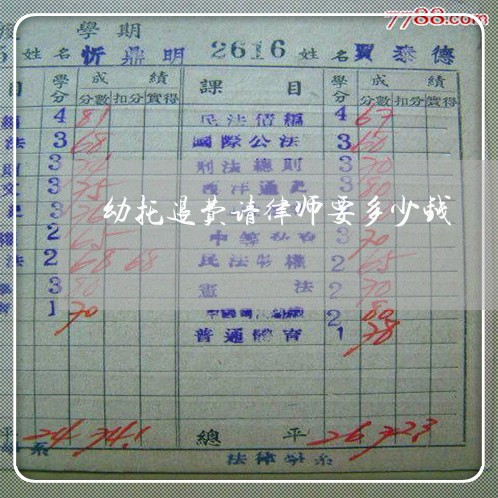 7788.com
學期
姓名 忻鼎明 2616 姓名 賈泰德
目 學分 成績 課目 學分 成績
分數 扣分 實得 分數 扣分 實得
4 81 民法債編 4 67
法 3 68 國際公法 3 60
則 3 刑法總則 3 70
3 75 西洋通史 3 80
3
幼托退费请律师要多少钱
2 65 3 70
法 2 68 68 民法物權 2 65
3 80 憲法 2 70
1 70 2 80
普通體育 1 78
平 24 74.1 總平 26 72.3
系 法律學系